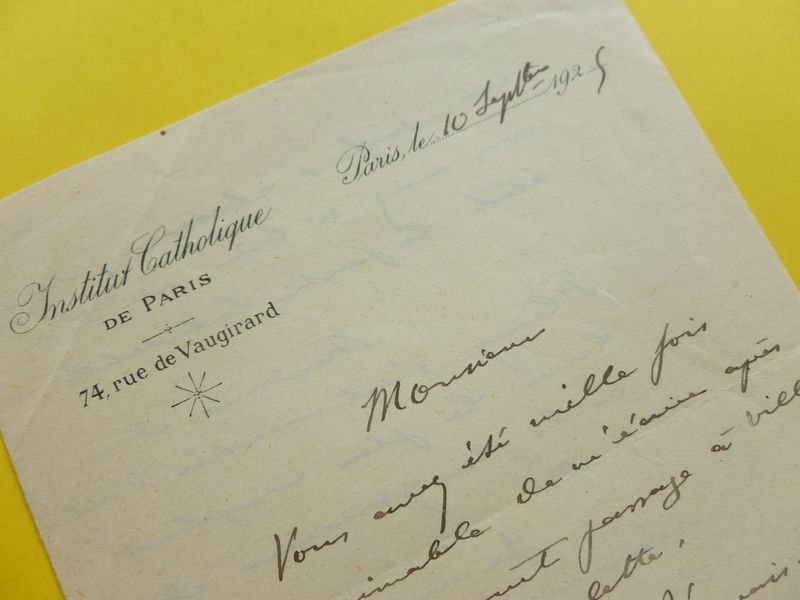 Paris, le 10 Septbre 1925
Institut Catholique
DE PARIS
74, rue de Vaugirard
Monsieur
Vous avez été mille fois
aimable de m'écrire après
passage à